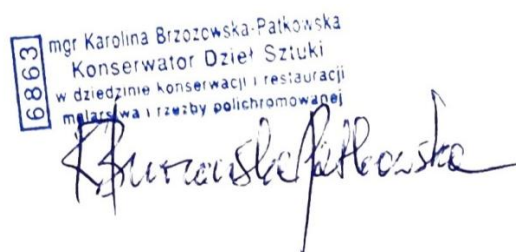 6863
mgr Karolina Brzozowska-Patkowska
Konserwator Dzieł Sztuki
w dziedzinie konserwacji i restauracji
malarstwa i rzeźby polichromowanej
KBrzozowskaPatkowska